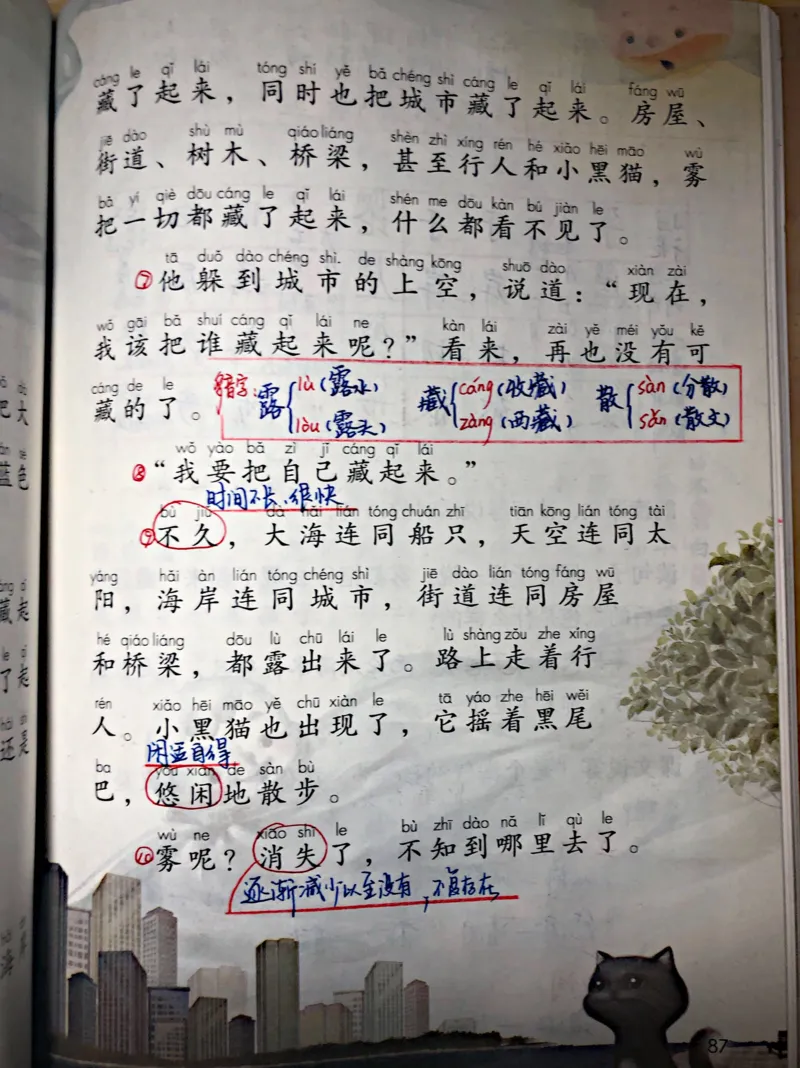 cáng le qǐ lái tóng shí yě bǎ chéng shì cáng le qǐ lái fáng wū
藏了起来，同时也把城市藏了起来。房屋、
jiē dào shù mù qiáo liáng shèn zhì xíng rén hé xiǎo hēi māo wù
街道、树木、桥梁，甚至行人和小黑猫，雾
bǎ yí qiè dōu cáng le qǐ lái shén me dōu kàn bú jiàn le
把一切都藏了起来，什么都看不见了。
tā duǒ dào chéng shì de shàng kōng shuō dào xiàn zài
⑦他躲到城市的上空，说道：“现在，
wǒ gāi bǎ shuí cáng qǐ lái ne kàn lái zài yě méi yǒu kě
我该把谁藏起来呢？”看来，再也没有可
cáng de le
藏的了。
多音字：露 lù（露水） lòu（露天） 藏 cáng（收藏） zàng（西藏） 散 sàn（分散） sǎn（散文）
wǒ yào bǎ zì jǐ cáng qǐ lái
⑧“我要把自己藏起来。”
时间不长、很快
bù jiǔ dà hǎi lián tóng chuán zhī tiān kōng lián tóng tài
⑨不久，大海连同船只，天空连同太
yáng hǎi àn lián tóng chéng shì jiē dào lián tóng fáng wū
阳，海岸连同城市，街道连同房屋
hé qiáo liáng dōu lù chū lái le lù shàng zǒu zhe xíng
和桥梁，都露出来了。路上走着行
rén xiǎo hēi māo yě chū xiàn le tā yáo zhe hēi wěi
人。小黑猫也出现了，它摇着黑尾
闲适自得
ba yōu xián de sàn bù
巴，悠闲地散步。
wù ne xiāo shī le bù zhī dào nǎ lǐ qù le
⑩雾呢？消失了，不知到哪里去了。
逐渐减少以至没有，不复存在
87